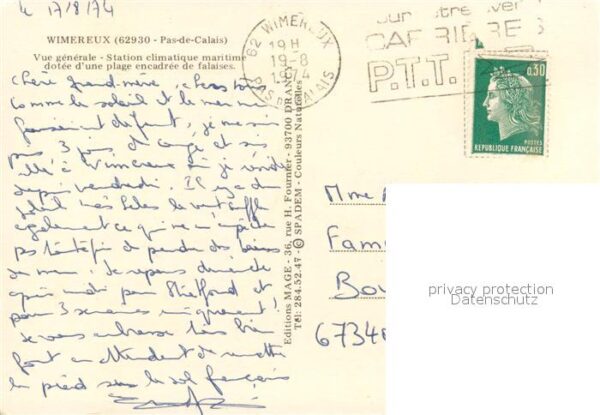 le 17/8/74
WIMEREUX (62930 - Pas-de-Calais)
Vue générale - Station climatique maritime
dotée d'une plage encadrée de falaises.
Chère grand mère, chers tous
Comme le soleil et la mer me
faisaient défaut, je me suis
pris 3 jours de congé et suis
allé à Wimereux où je réside
depuis vendredi. Il y a du
soleil mais hélas le vent souffle
également ce qui ne m'empêche
pas toutefois de prendre des bains
de mer. Je repars dimanche
après midi pour
pour 3 semaines
Je vous embrasse très bien
fort en attendant de remettre
le pied sur le sol français
62 WIMEREUX
19H
19-8
1974
PAS DE CALAIS
CARRIERES
P.T.T.
0,30
POSTES
REPUBLIQUE FRANÇAISE
Editions MAGE - 36, rue H. Fournier - 93700 DRANCY
Tél: 284.52.47 - © SPADEM - Couleurs Naturelles
Mme
Fam
Bo
6734
privacy protection
Datenschutz